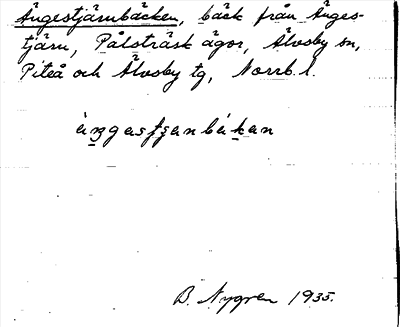 Ängestjärnbäcken, bäck från Änges-
tjärn, Pålsträsk ägor, Älvsby sn,
Piteå och Älvsby tg, Norrb. l.
B. Nygren 1935.